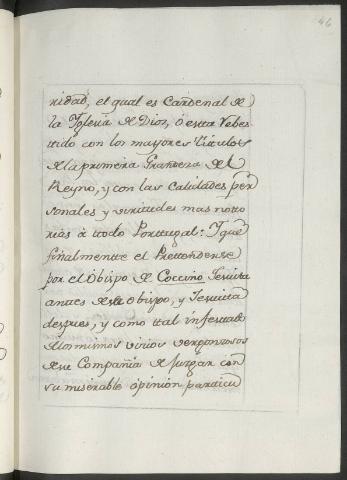 46
nidad, el qual es Cardenal de
la Iglesia de Dios, ò esta Vebes
tido con los mayores titulos
de la primera Grandeza del
Reyno, y con las calidades per
sonales y virtudes mas noto
rias à todo Portugal: I que
finalmente el Pretendense
por el Obispo de Coccino Jesuita
antes de la Obispo, y Jesuita
despues, y como tal infestado
de los mismos vicios vergonzosos
de su Compañia de juzgar con
su miserable opinion particu